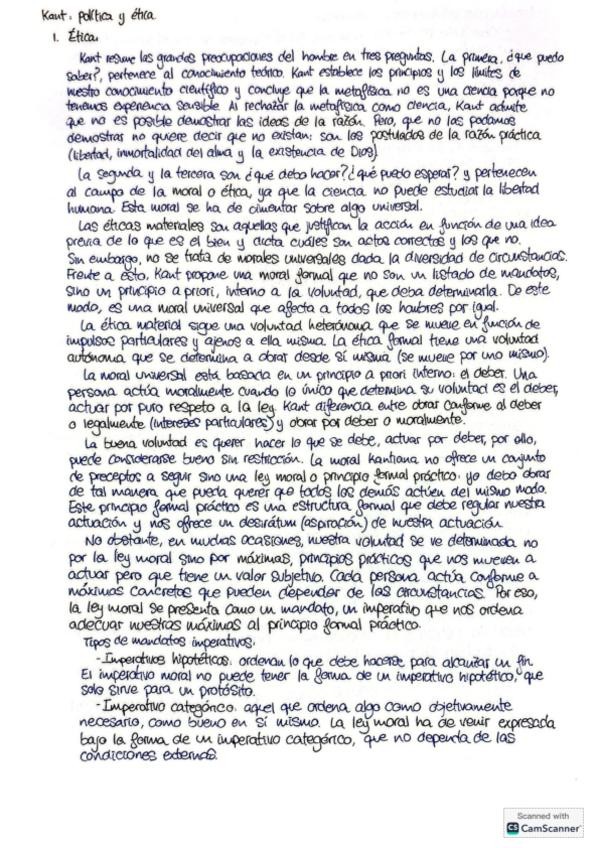 Kant: política y ética
1. Ética
Kant resume las grandes preocupaciones del hombre en tres preguntas. La primera, ¿qué puedo
saber?, pertenece al conocimiento teórico. Kant establece los principios y los límites de
nuestro conocimiento científico y concluye que la metafísica no es una ciencia porque no
tenemos experiencia sensible. Al rechazar la metafísica como ciencia, Kant admite
que no es posible demostrar las ideas de la razón. Pero, que no las podamos
demostrar no quiere decir que no existan: son los postulados de la razón práctica
(libertad, inmortalidad del alma y la existencia de Dios).
La segunda y la tercera son ¿qué debo hacer? ¿qué puedo esperar? y pertenecen
al campo de la moral o ética, ya que la ciencia no puede estudiar la libertad
humana. Esta moral se ha de cimentar sobre algo universal.
Las éticas materiales son aquellas que justifican la acción en función de una idea
previa de lo que es el bien y dicta cuáles son actos correctos y los que no.
Sin embargo, no se trata de morales universales dada la diversidad de circunstancias.
Frente a esto, Kant propone una moral formal que no son un listado de mandatos,
sino un principio a priori, interno a la voluntad, que deba determinarla. De este
modo, es una moral universal que afecta a todos los hombres por igual.
La ética material sigue una voluntad heterónoma que se mueve en función de
impulsos particulares y ajenos a ella misma. La ética formal tiene una voluntad
autónoma que se determina a obrar desde sí misma (se mueve por uno mismo).
La moral universal está basada en un principio a priori interno: el deber. Una
persona actúa moralmente cuando lo único que determina su voluntad es el deber,
actuar por puro respeto a la ley. Kant diferencia entre obrar conforme al deber
o legalmente (intereses particulares) y obrar por deber o moralmente.
La buena voluntad es querer hacer lo que se debe, actuar por deber, por ello,
puede considerarse bueno sin restricción. La moral Kantiana no ofrece un conjunto
de preceptos a seguir sino una ley moral o principio formal práctico: yo debo obrar
de tal manera que pueda querer que todos los demás actúen del mismo modo.
Este principio formal práctico es una estructura formal que debe regular nuestra
actuación y nos ofrece un desirátum (aspiración) de nuestra actuación.
No obstante, en muchas ocasiones, nuestra voluntad se ve determinada no
por la ley moral sino por máximas, principios prácticos que nos mueven a
actuar pero que tiene un valor subjetivo. Cada persona actúa conforme a
máximas concretas que pueden depender de las circunstancias. Por eso,
la ley moral se presenta como un mandato, un imperativo que nos ordena
adecuar nuestras máximas al principio formal práctico.
Tipos de mandatos imperativos:
-Imperativos hipotéticos: ordenan lo que debe hacerse para alcanzar un fin.
El imperativo moral no puede tener la forma de un imperativo hipotético, que
solo sirve para un protósito.
-Imperativo categórico: aquel que ordena algo como objetivamente
necesario, como bueno en sí mismo. La ley moral ha de venir expresada
bajo la forma de un imperativo categórico, que no dependa de las
condiciones externas.
Scanned with
CS CamScanner